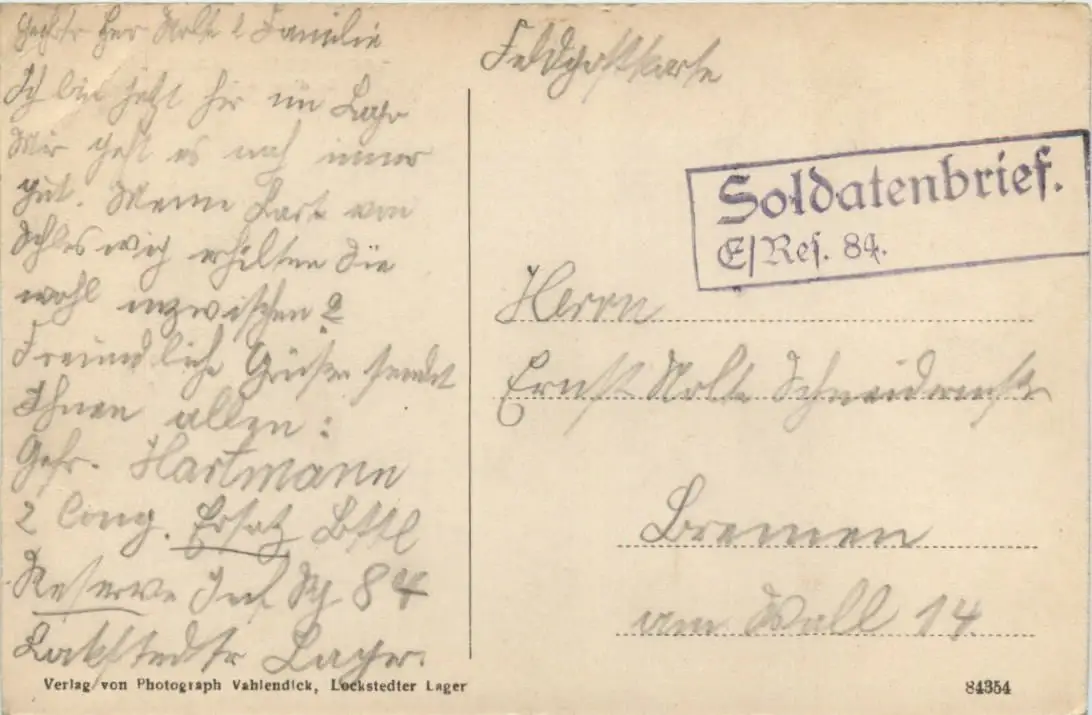 Geehrter Herr Nolte & Familie
Ich bin jetzt hir im Lager
Mir geht es noch immer
gut. Meine Karte von
Schleswig erhilten Sie
wohl inzwischen?
Freundliche Grüße sendet
Ihnen allen:
Gefr. Hartmann
2 Comp. Ersatz Bttl
Reserve Inf. Rg 84
Lockstedtr Lager.
Feldpostkarte
Soldatenbrief.
E/Res. 84.
Herrn
Ernst Nolte Schneidermstr
Bremen
am Wall 14
Verlag von Photograph Vahlendick, Lockstedter Lager
84354